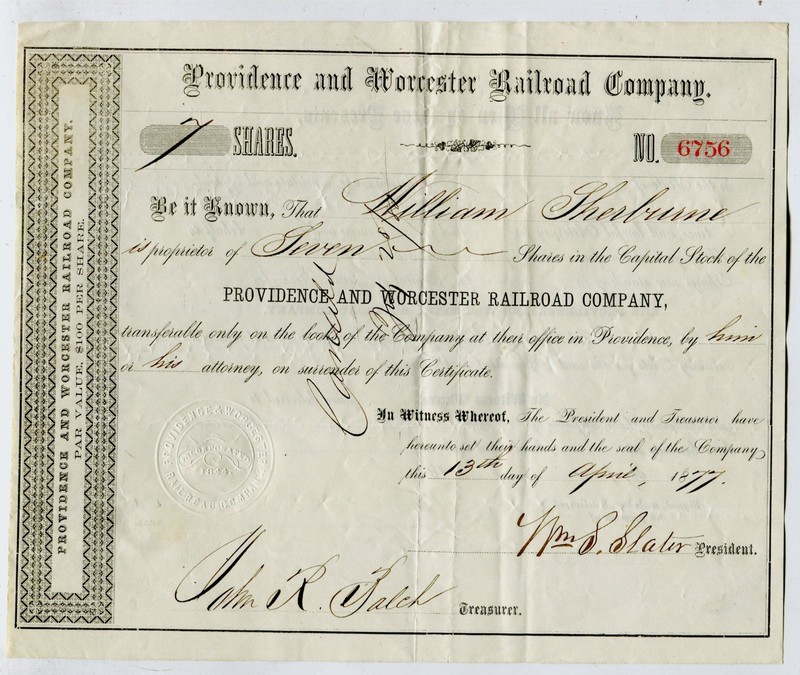 Providence and Worcester Railroad Company.
7 SHARES.
NO. 6756
Be it Known, That William Sherburne
is proprietor of Seven Shares in the Capital Stock of the
PROVIDENCE AND WORCESTER RAILROAD COMPANY,
transferable only on the books of the Company at their office in Providence, by him
or his attorney, on surrender of this Certificate.
In Witness Whereof, The President and Treasurer have
hereunto set their hands and the seal of the Company
this 13th day of April, 1877.
Wm S. Slater President.
John R. Balch Treasurer.
PROVIDENCE AND WORCESTER RAILROAD COMPANY.
PAR VALUE, $100 PER SHARE.
PROVIDENCE & WORCESTER
RAILROAD COMPANY